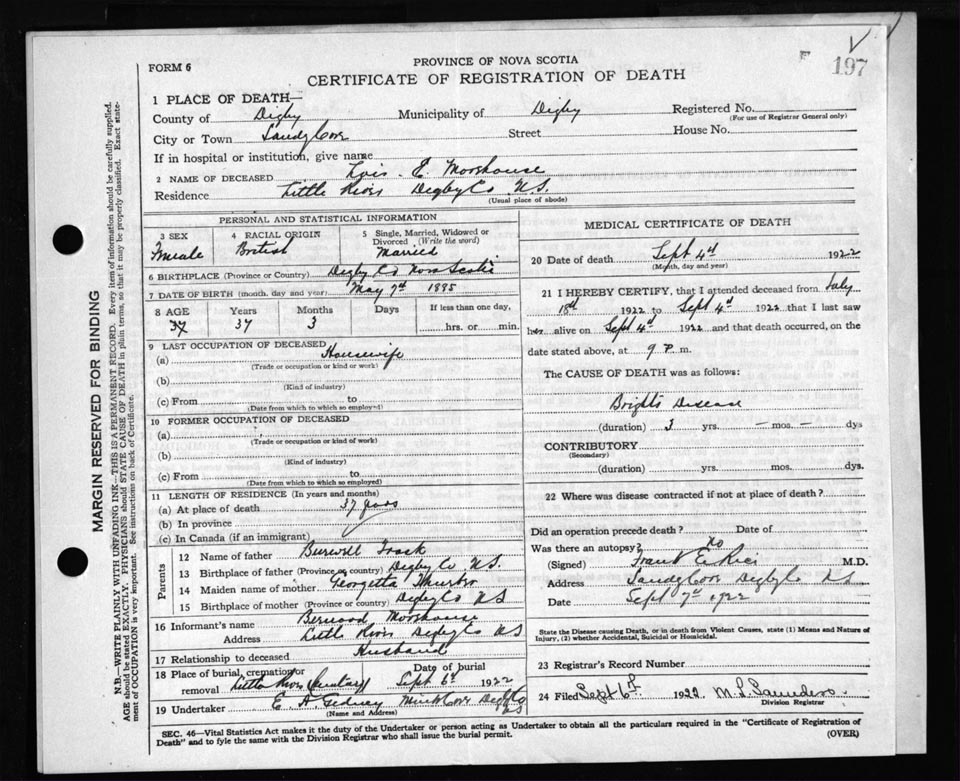 197
FORM 6
PROVINCE OF NOVA SCOTIA
CERTIFICATE OF REGISTRATION OF DEATH
1 PLACE OF DEATH—
County of Digby Municipality of Digby Registered No.
(For use of Registrar General only)
City or Town Sandy Cove Street House No.
If in hospital or institution, give name
2 NAME OF DECEASED Lois. E Moorhouse
Residence Little River Digby Co N.S.
(Usual place of abode)
PERSONAL AND STATISTICAL INFORMATION
3 SEX 4 RACIAL ORIGIN 5 Single, Married, Widowed or Divorced (Write the word)
Female British Married
6 BIRTHPLACE (Province or Country) Digby Co Nova Scotia
7 DATE OF BIRTH (month, day and year) May 7th 1885
8 AGE Years Months Days If less than one day,
37 37 3 hrs. or min.
9 LAST OCCUPATION OF DECEASED
(a) Housewife
(Trade or occupation or kind or work)
(b)
(Kind of industry)
(c) From to
(Date from which to which so employed)
10 FORMER OCCUPATION OF DECEASED
(a)
(Trade or occupation or kind of work)
(b)
(Kind of industry)
(c) From to
(Date from which to which so employed)
11 LENGTH OF RESIDENCE (In years and months)
(a) At place of death 37 years
(b) In province
(c) In Canada (if an immigrant)
Parents
12 Name of father Trask
13 Birthplace of father (Province or country) Digby Co N.S.
14 Maiden name of mother Georgetta
15 Birthplace of mother (Province or country) Digby Co N S
16 Informant's name Moorhouse
Address Little River Digby Co N S
17 Relationship to deceased Husband
18 Place of burial, cremation or removal Little River Date of burial Sept 6th 1922
19 Undertaker E. H. Gidney Mink Cove Digby Co NS
(Name and Address)
MEDICAL CERTIFICATE OF DEATH
20 Date of death Sept 4th 1922
(Month, day and year)
21 I HEREBY CERTIFY, that I attended deceased from July
18th 1922 to Sept 4th 1922 that I last saw
her alive on Sept 4th 1922 and that death occurred, on the
date stated above, at 9 P. m.
The CAUSE OF DEATH was as follows:
Brights Disease
(duration) 3 yrs. — mos. — dys
CONTRIBUTORY
(Secondary)
(duration) yrs. mos. dys.
22 Where was disease contracted if not at place of death?
Did an operation precede death? Date of
Was there an autopsy? No
(Signed) Frank E Rice M.D.
Address Sandy Cove Digby Co N S
Date Sept 7th 1922
State the Disease causing Death, or in death from Violent Causes, state (1) Means and Nature of
Injury, (2) whether Accidental, Suicidal or Homicidal.
23 Registrar's Record Number
24 Filed Sept 6th 1922 Saunders
Division Registrar
SEC. 46—Vital Statistics Act makes it the duty of the Undertaker or person acting as Undertaker to obtain all the particulars required in the "Certificate of Registration of
Death" and to fyle the same with the Division Registrar who shall issue the burial permit. (OVER)
MARGIN RESERVED FOR BINDING
N.B.—WRITE PLAINLY WITH UNFADING INK—THIS IS A PERMANENT RECORD. Every item of information should be carefully supplied.
AGE should be stated EXACTLY. PHYSICIANS should STATE CAUSE OF DEATH in plain terms, so that it may be properly classified. Exact state-
ment of OCCUPATION is very important. See instructions on back of Certificate.